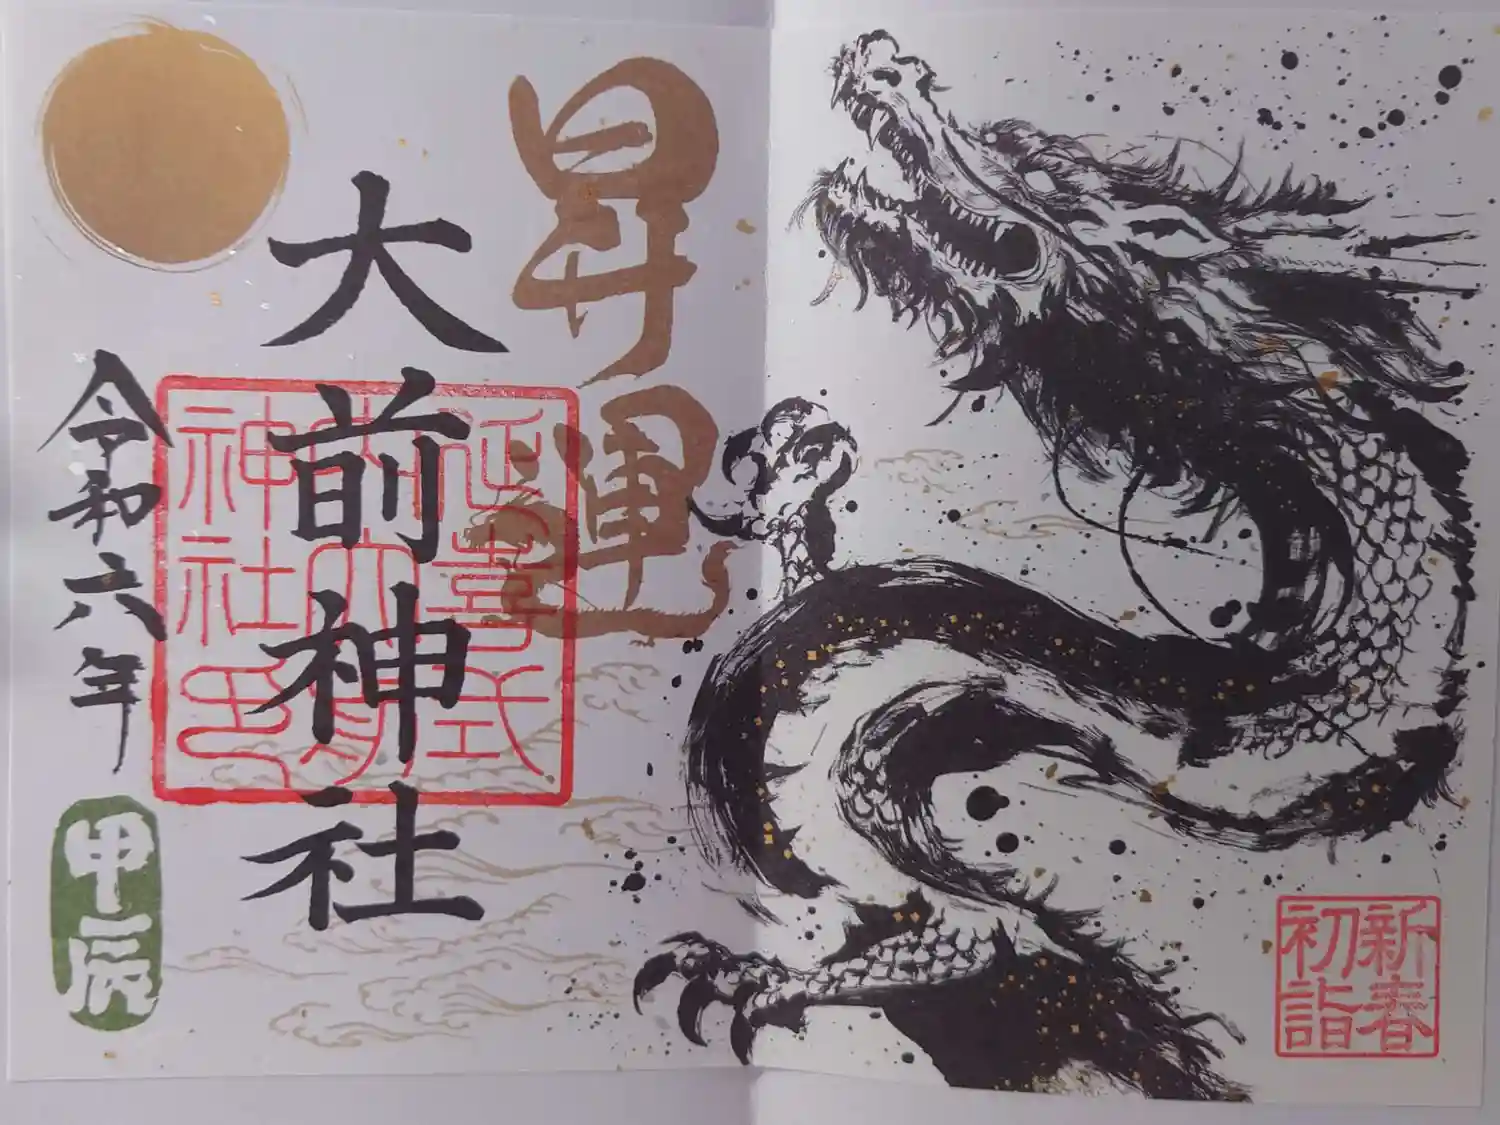 新春
初詣
昇運
大前神社
延喜式
内大前
神社印
令和六年
甲辰